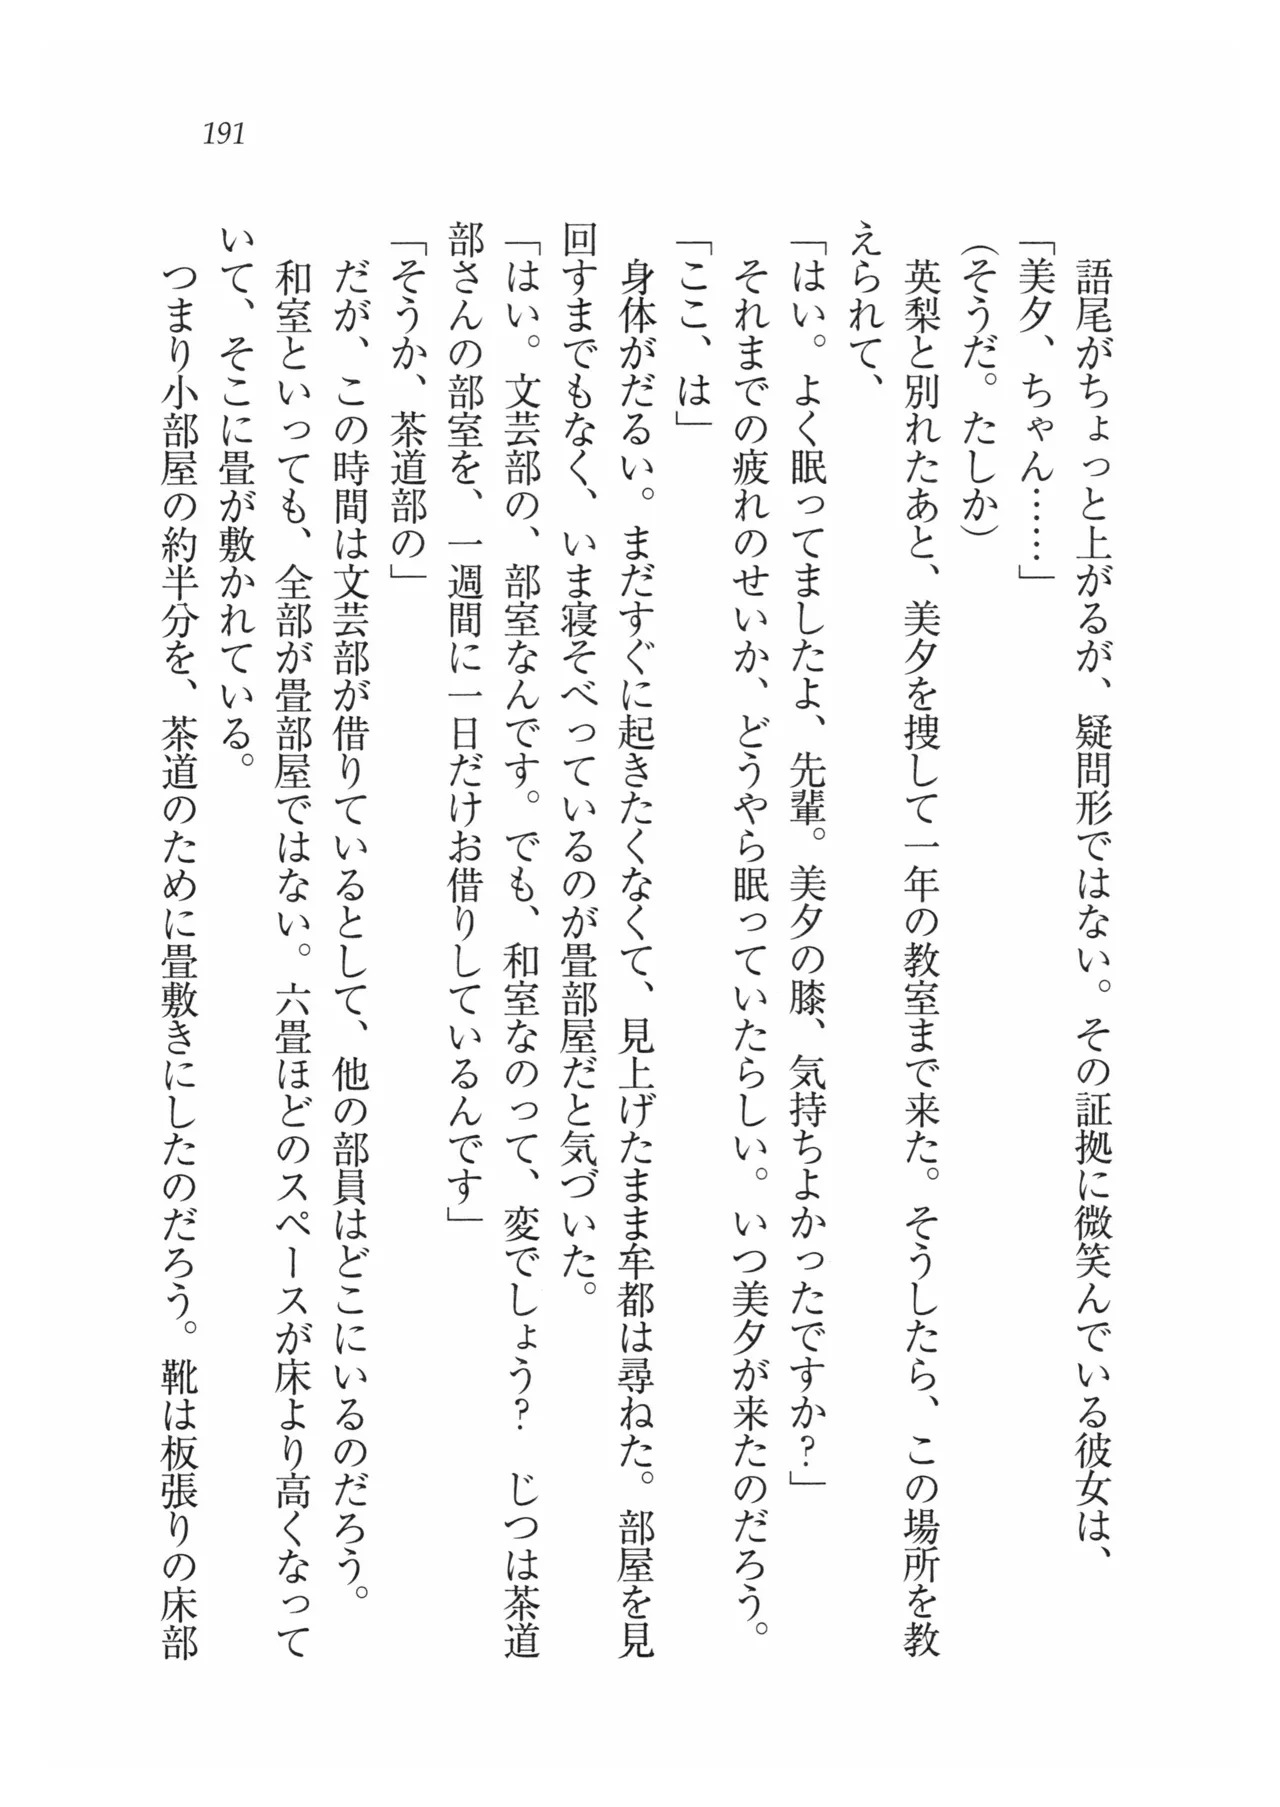 191
　語尾がちょっと上がるが、疑問形ではない。その証拠に微笑んでいる彼女は、
「美夕、ちゃん……」
（そうだ。たしか）
　英梨と別れたあと、美夕を捜して一年の教室まで来た。そうしたら、この場所を教
えられて、
「はい。よく眠ってましたよ、先輩。美夕の膝、気持ちよかったですか？」
　それまでの疲れのせいか、どうやら眠っていたらしい。いつ美夕が来たのだろう。
「ここ、は」
　身体がだるい。まだすぐに起きたくなくて、見上げたまま牟都は尋ねた。部屋を見
回すまでもなく、いま寝そべっているのが畳部屋だと気づいた。
「はい。文芸部の、部室なんです。でも、和室なのって、変でしょう？　じつは茶道
部さんの部室を、一週間に一日だけお借りしているんです」
「そうか、茶道部の」
　だが、この時間は文芸部が借りているとして、他の部員はどこにいるのだろう。
　和室といっても、全部が畳部屋ではない。六畳ほどのスペースが床より高くなって
いて、そこに畳が敷かれている。
　つまり小部屋の約半分を、茶道のために畳敷きにしたのだろう。靴は板張りの床部